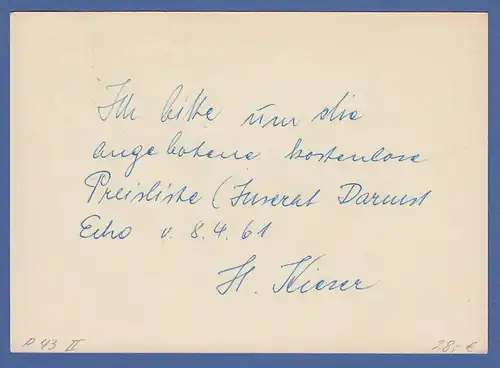 Ich bitte um die
angebotene kostenlose
Preisliste (Inserat Darmst
Echo v. 8.4.61
H. Kieser
P 43 II 28,- €